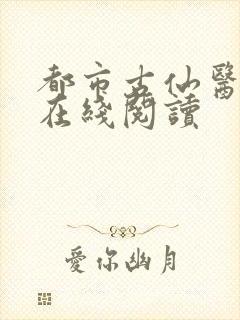 都市古仙醫
在綫閱讀
愛你幽月